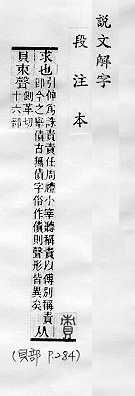 說文解字
段注本
求也引伸爲誅責責任周禮小宰聽稱責以傅別稱責
即今之舉債古無債字俗作債則聲形皆異矣从
貝朿聲側革切十六部
(貝部 P.284)